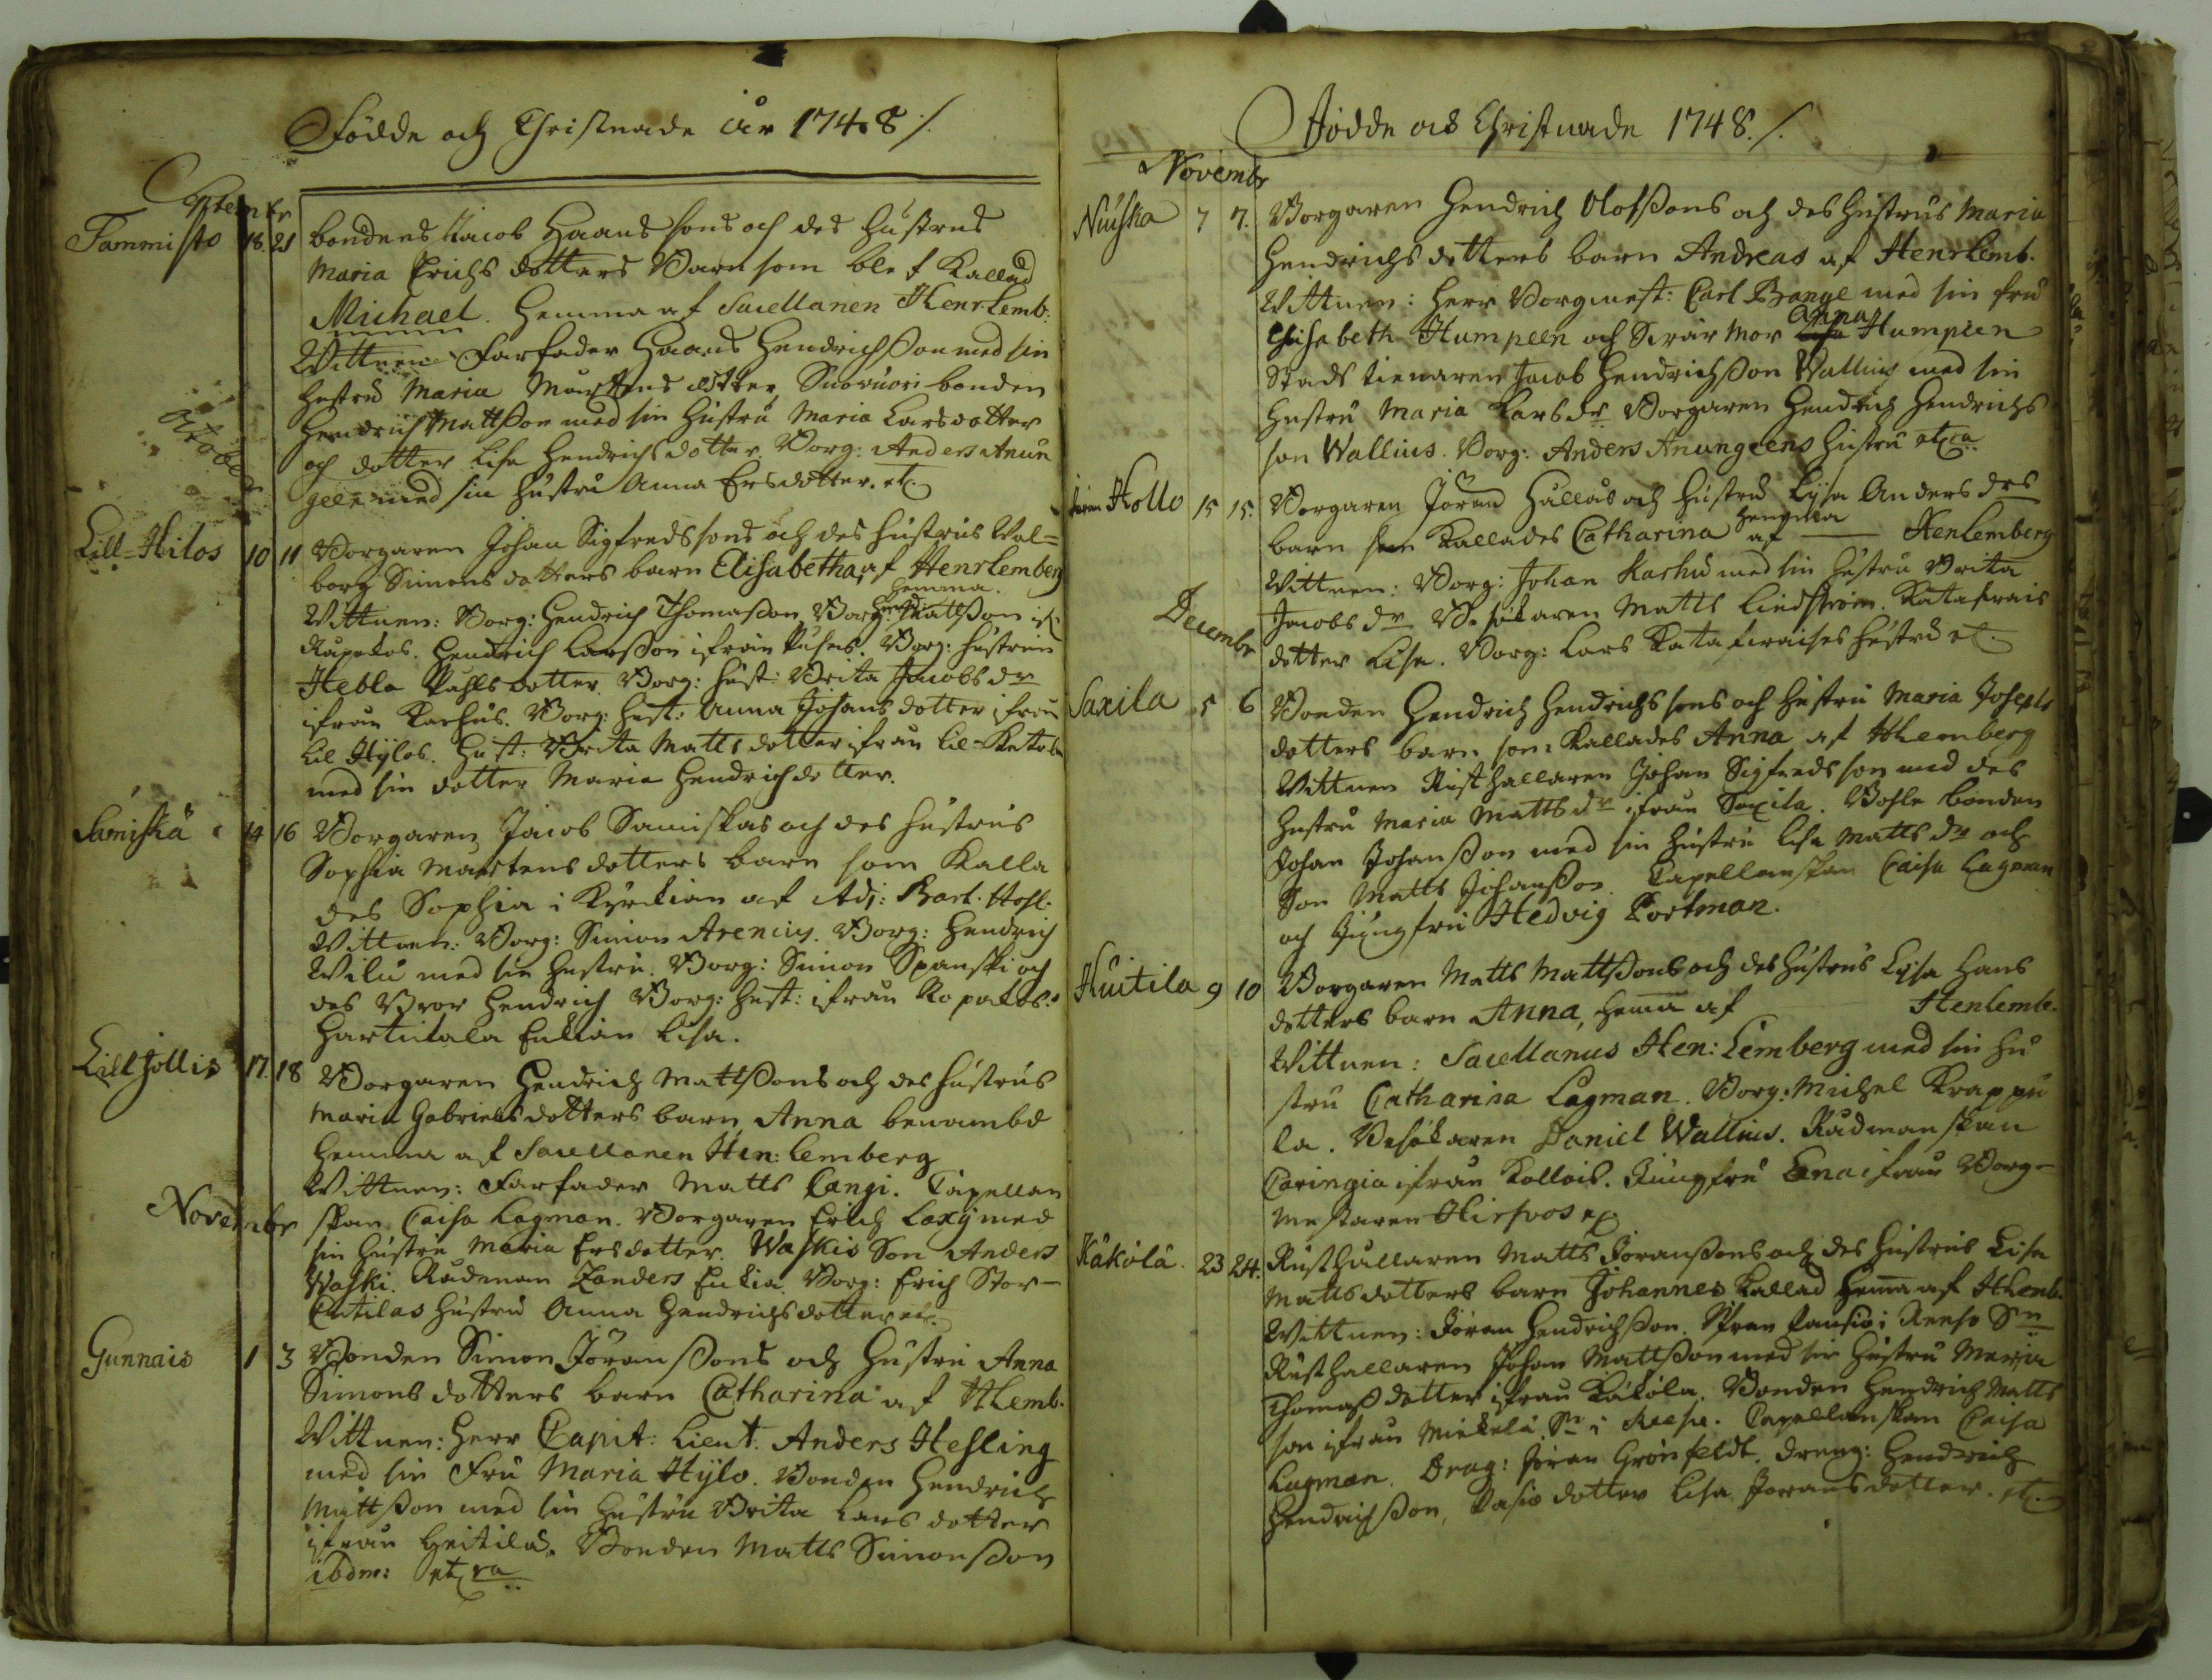 Födde och Christnade år 1748 ./.
Septembr
Tammisto 18. 21 bondens Jacob Hans sons och des hustrus
Maria Erichs dotters Barn som blef Kallad
Michael. hemma af Sacellanen Henr: Lemb:
Wittnen Farfader Hans Hendrichsson med sin
hustru Maria Mårtens dotter, Suoruori bonden
Hendrich Mattsson med sin hustru Maria Larsdotter
och dotter Lisa Hendrichsdotter. Borg: Anders Anun
geen med sin hustru Anna Ersdotter. etc.
October
Lill-Hilos 10 11 Borgaren Johan Sigfredssons och des hustrus Wal=
borg Simons dotters barn Elisabetha, af Henr Lemberg
hemma.
Wittnen: Borg: Hendrich Thomasson, Borg: Mattsson if:
Raupolos. Hendrich Larsson ifrån Puhas. Borg: hustrun
Hebla Påhlsdotter. Borg: hust: Brita Jacobs dr
ifrån Karhus. Borg: hust: Anna Johans dotter ifrån
Lil Hylos. hust: Brita Matts dotter ifrån Lil-Ketola
med sin dotter Maria Hendrichdotter.
Samiskä 14 16 Borgaren Jacob Samiskas och des hustrus
Sophia Martens dotters barn som Kalla
des Sophia i Kyrckian af Adj: Bart. Hohl.
Wittnen: Borg: Simon Arenius. Borg: Hendrich
Wilu med sin hustru. Borg: Simon Spanski och
des Bror Hendrich Borg: hust: ifrån Ropakos.
Hartikala Enkian Lisa.
Lill Jollis 17. 18 Borgaren Hendrich Mattssons och des hustrus
Maria Gabriels dotters barn, Anna benämbd
hemma af Sacellanen Hen: Lemberg
Wittnen: Farfader Matts Cangi. Capellan
Novembr
skan Caisa Lagman. Borgaren Erich Laxy med
sin hustru Maria Ersdotter. Waskis Son Anders
Waski. Rådman Zanders Enkia. Borg: Erich Stor-
Euttilas hustru Anna Hendrichsdotter etc.
Gunnais 1 3 Bonden Simon Jöranssons och Hustru Anna
Simons dotters barn Catharina af HLemb.
Wittnen: Herr Capit: Lieut. Anders Hesling
med sin Fru Maria Hylo. Bonden Hendrich
Mattsson med sin hustru Brita Lars dotter
ifrån Heitila. Bonden Matts Simonsson
ibdm: etxra
Födde och Christnade 1748 ./.
Novembr
Nuiska 7 7. Borgaren Hendrich Olofssons och des hustrus Maria
Hendrichsdotters barn Andreas af Henr Lemb.
Wittnen: Herr Borgmest: Carl Bange med sin fru
Elisabeth Humpleen och Swär Mor Anna Humpleen
Stads tienaren Jacob Hendrichsson Wallius med sin
hustru Maria Lars dr Borgaren Hendrich Hendrichs
son Wallius. Borg: Anders Anungeens hustru etxa
Jören Hollo 15 15. Borgaren Jöran Hållås och hustru Lisa Anders drs
barn som Kallades Catharina hemma af Hen Lemberg
Wittnen: Borg: Johan Karhu med sin hustru Brita
Jacobs dr Besökaren Matts Lindström. Katafrais
Decembr
dotter Lisa. Borg: Lars Katafraises hustru etc.
Saxila 5 6 Bonden Hendrich Hendrichssons och hustru Maria Josephs
dotters barn som Kallades Anna af HLemberg
Wittnen Rusthållaren Johan Sigfredsson med des
hustru Maria Matts dr ifrån Saxila. Bohle bonden
Johan Johansson med sin hustru Lisa Matts dr och
Son Matts Johansson. Capellanskan Caisa Lagman
och Jungfru Hedvig Portman.
Huitila 9 10 Borgaren Matts Mattssons och des hustrus Lisa Hans
dotters barn Anna, hema af Hen Lemb.
Wittnen: Sacellanus Hen: Lemberg med sin hu
stru Catharina Lagman. Borg: Michel Krappu
la. Besökaren Daniel Wallius. Rådmanskan
Caringia ifrån Kollois. Jungfru Ena ifrån Borg-
mestaren Hirfvos etc
Käkölä 23 24. Rusthållaren Matts Joranssons och des hustrus Lisa
Mattsdotters barn Johannes Kallad hema af HLemb.
Wittnen: Jöran Hendrichsson. Reeso Sn
Rusthållaren Johan Mattsson med sin hustru Maria
Thomasdotter ifrån Käkölä. Bonden Hendrich Matts
son ifrån Mickelä Sn i Reeso. Capellanskan Caisa
Lagman. Drag: Jöran Grönfeldt. Dreng: Hendrich
Hendrichsson, Pasis dotter Lisa Joransdotter. etc.